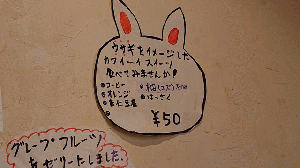 ウサギをイメージした
カワイーイ スイーツ
食べてみませんか!
●コーヒー
●オレンジ
●杏仁豆腐 ●はっさく
¥50
グレープフルーツ
ゼリーたしました。